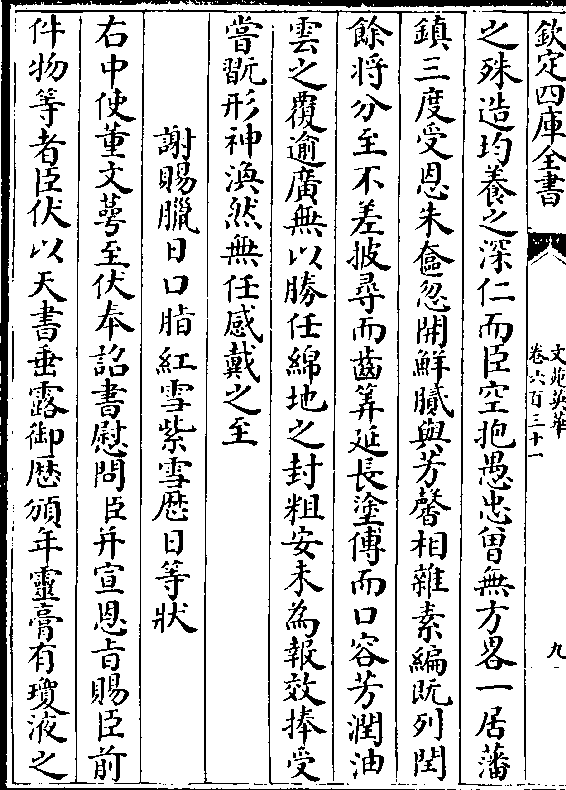 欽定四庫全書
文苑英華
卷六百三十一
九
之殊造均養之深仁而臣空抱愚忠曾無方畧一居藩
鎮三度受恩朱奩忽開鮮膩與芳馨相雜素編既列閏
餘將分至不差披尋而齒筭延長塗傅而口容芳潤油
雲之覆逾廣無以勝任綿地之封粗安未為報效捧受
嘗翫形神渙然無任感戴之至
謝賜臘日口脂紅雪紫雪厯日等狀
右中使董文萼至伏奉詔書慰問臣并宣恩旨賜臣前
件物等者臣伏以天書垂露御厯頒年靈膏有瓊液之